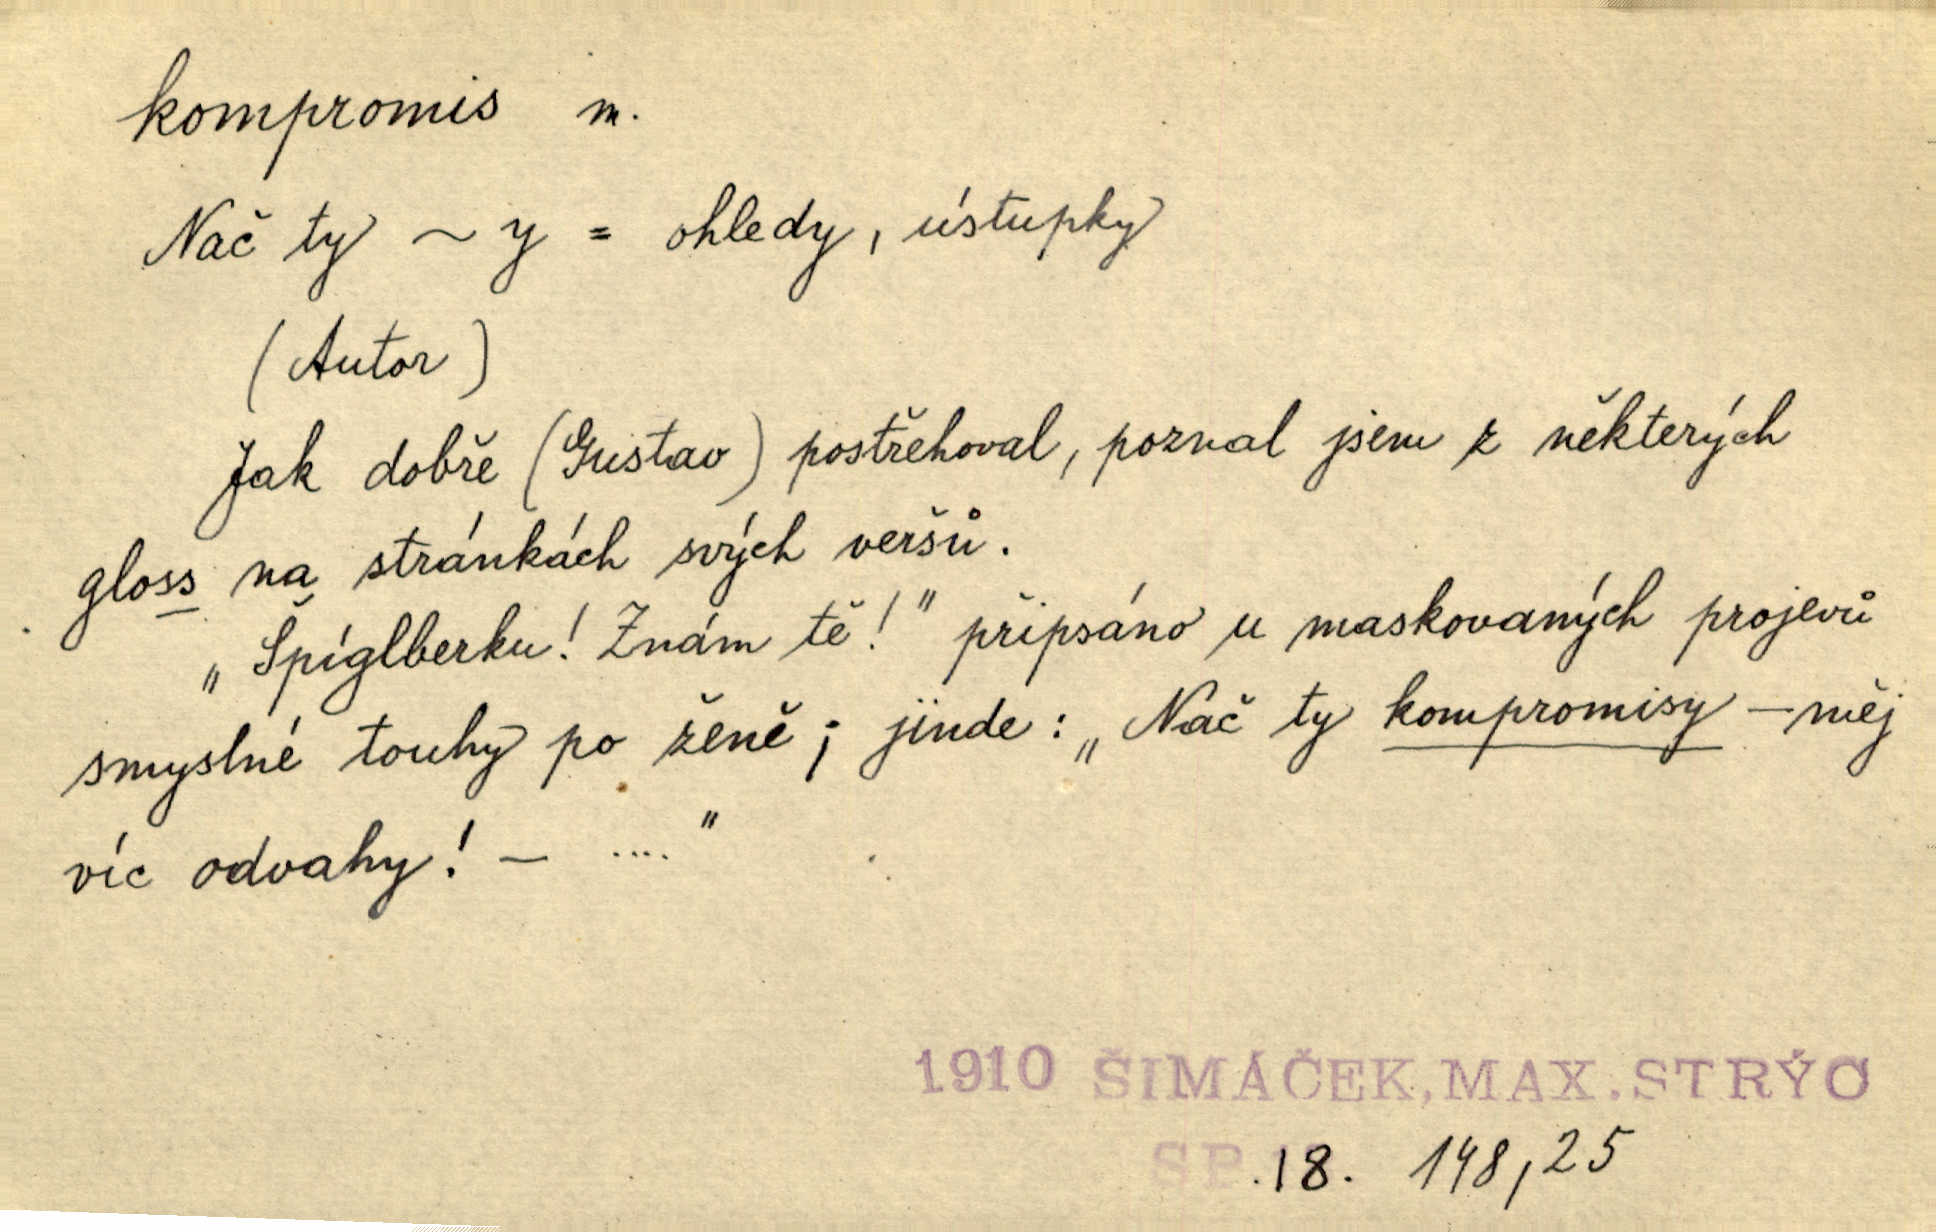 kompromis m.
Nač ty ~ y = ohledy, ústupky
(Autor)
Jak dobře (Gustav) postřehoval, poznal jsem z některých
gloss na stránkách svých veršů.
„Špíglberku! Znám tě!" připsáno u maskovaných projevů
smyslné touhy po ženě; jinde: „Nač ty kompromisy – měj
víc odvahy! – ...."
1910 ŠIMÁČEK, MAX. STRÝC
SP. 18. 148,25